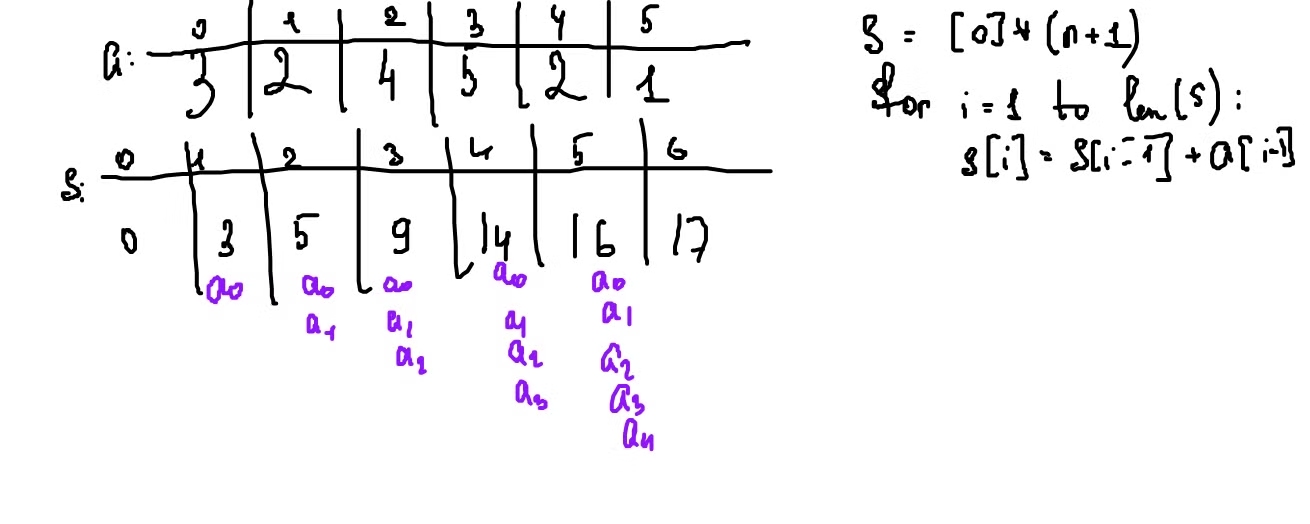 0 1 2 3 4 5
a: 3 2 4 5 2 1
0 1 2 3 4 5 6
S: 0 3 5 9 14 16 17
a0 a0 a0 a0 a0
a1 a1 a1 a1
a2 a2 a2
a3 a3
a4
S = [0] * (n+1)
for i = 1 to len(s):
S[i] = S[i-1] + a[i-1]